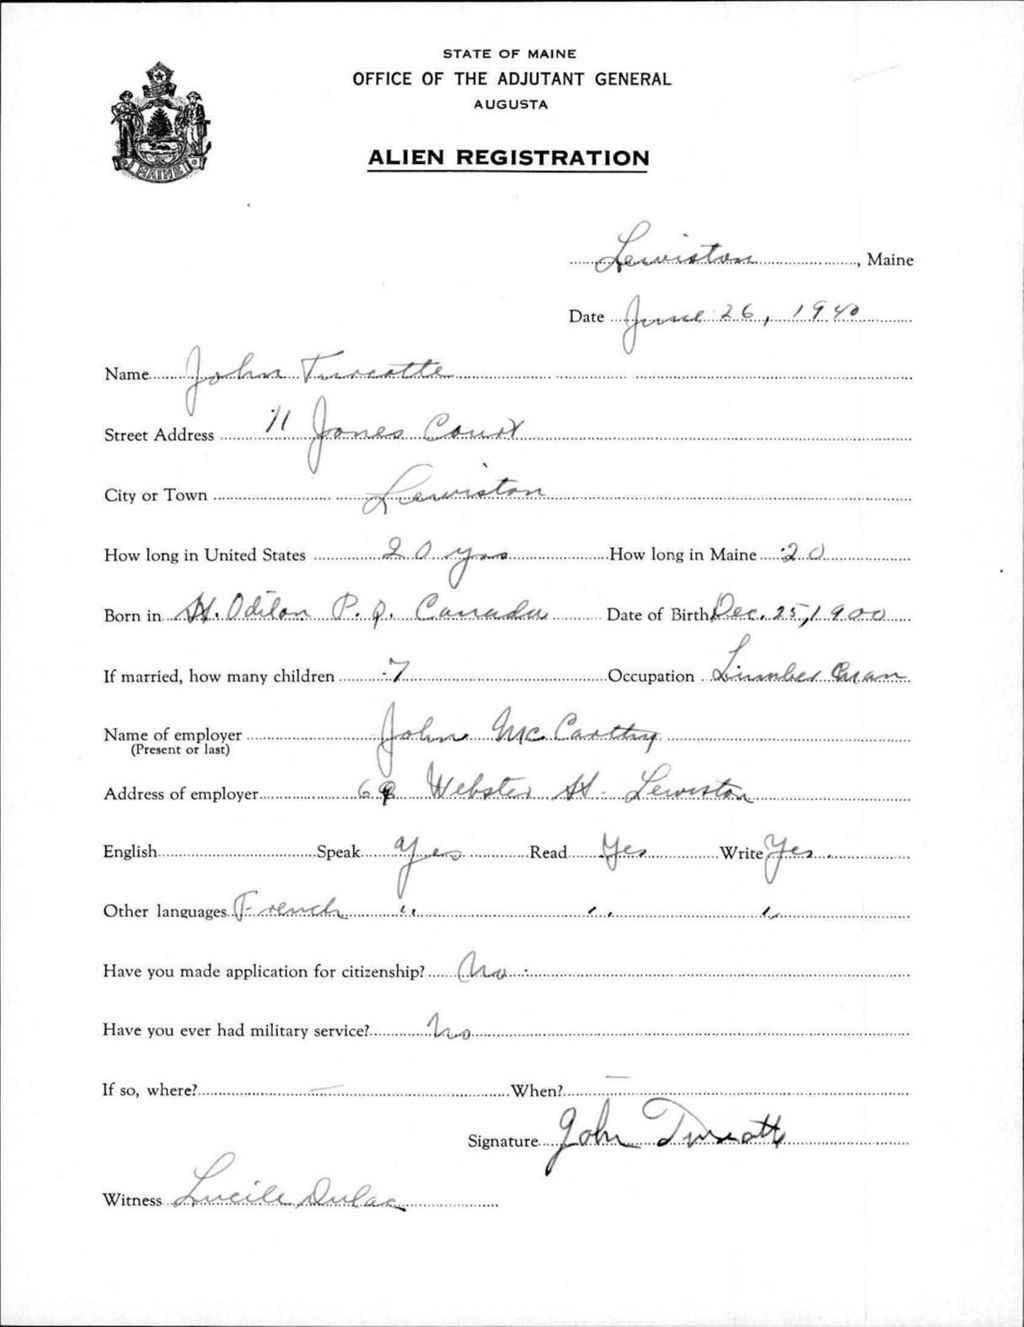 STATE OF MAINE
OFFICE OF THE ADJUTANT GENERAL
AUGUSTA
ALIEN REGISTRATION
MAINE
Lewiston, Maine
Date June 26, 1940
Name John Turcotte
Street Address 11 Jones Court
City or Town Lewiston
How long in United States 20 yrs How long in Maine 20
Born in St. Odilon P. Q. Canada Date of Birth Dec. 25, 1900
If married, how many children 7 Occupation Lumber man
Name of employer John McCarthy
(Present or last)
Address of employer Webster St - Lewiston
English Speak Yes Read Yes Write Yes
Other languages French " " "
Have you made application for citizenship? No
Have you ever had military service? No
If so, where? — When? —
Signature John Turcotte
Witness Lucile Dulac